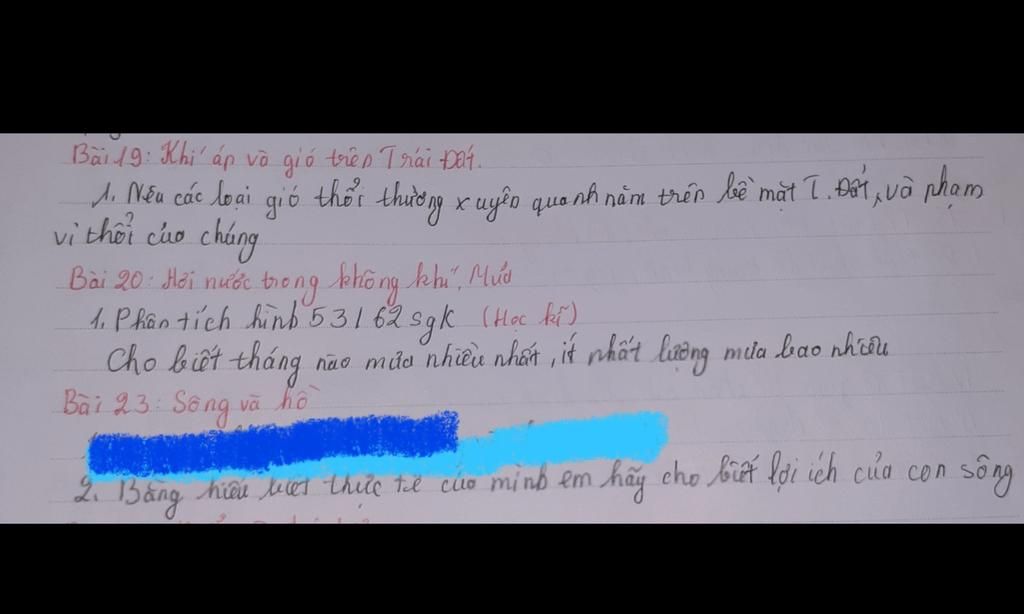 Bài 19: Khí áp và gió trên Trái Đất.
1. Nêu các loại gió thổi thường xuyên quanh năm trên bề mặt T. Đất, và phạm
vi thổi của chúng
Bài 20: Hơi nước trong không khí, Mưa
1. Phân tích hình 53/62 sgk (Học kĩ)
Cho biết tháng nào mưa nhiều nhất, ít nhất lượng mưa bao nhiêu
Bài 23: Sông và hồ
2. Bằng hiểu biết thực tế của mình em hãy cho biết lợi ích của con sông